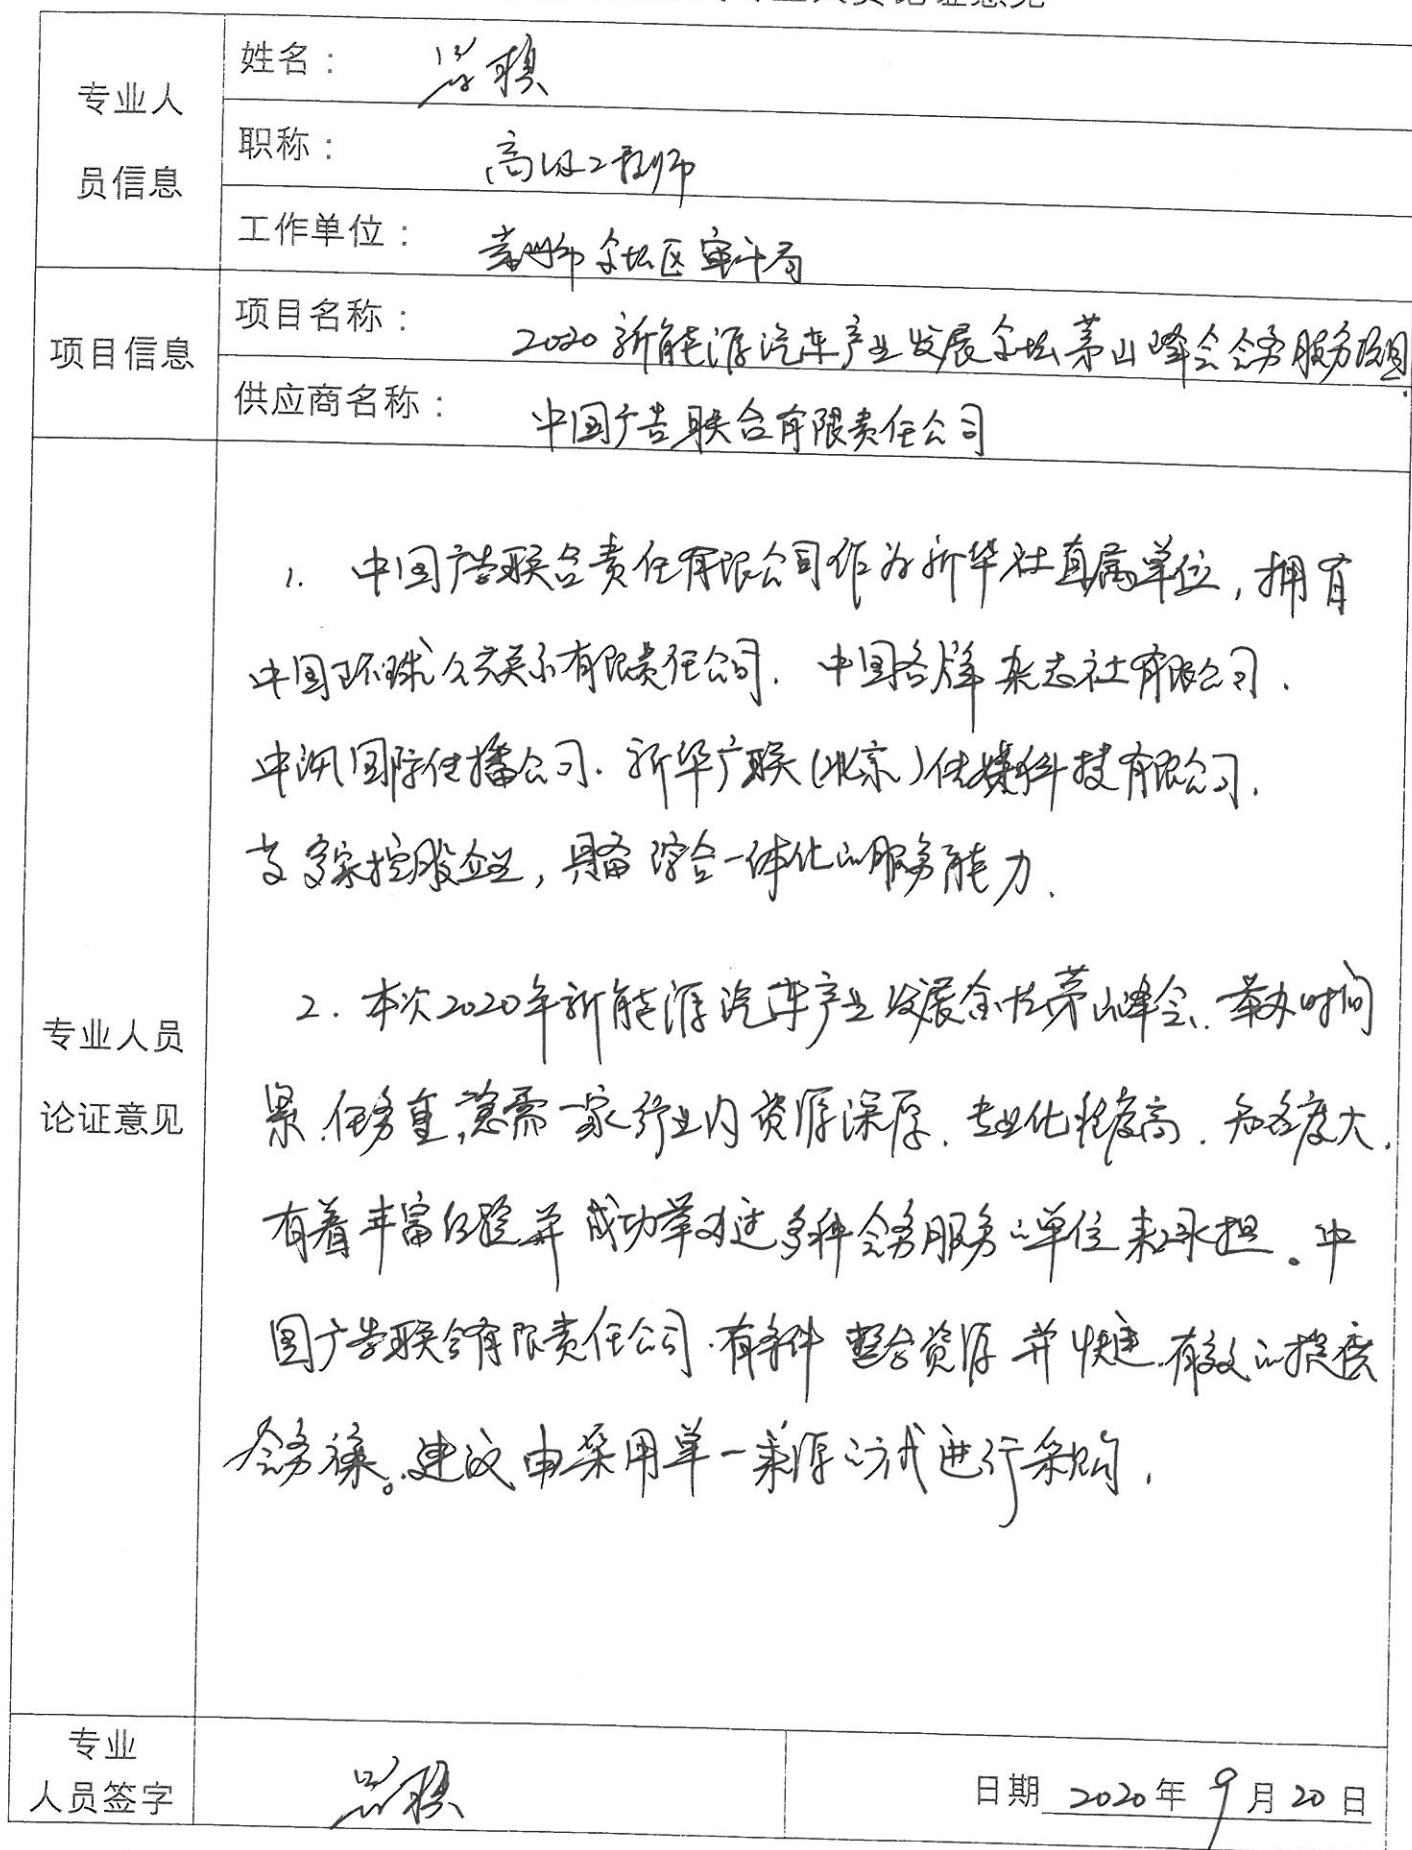 专业人员论证意见
专业人
员信息
姓名：
职称：高级工程师
工作单位：常州市金坛区审计局
项目信息
项目名称：2020新能源汽车产业发展金坛茅山峰会会务服务项目.
供应商名称：中国广告联合有限责任公司
专业人员
论证意见
1. 中国广告联合责任有限公司作为新华社直属单位，拥有
中国环球公共关系有限责任公司、中国名牌杂志社有限公司、
中洲国际传播公司、新华广联(北京)传媒科技有限公司、
等多家控股企业，具备综合一体化的服务能力.
2. 本次2020年新能源汽车产业发展金坛茅山峰会、举办时间
紧、任务重，急需一家行业内资源深厚、专业化程度高、知名度大、
有着丰富经验并成功举办过多种会务服务的单位来承担。中
国广告联合有限责任公司.有条件整合资源并快速、有效的搭建
会务。建议由采用单一来源的方式进行采购.
专业
人员签字
日期 2020年9月20日